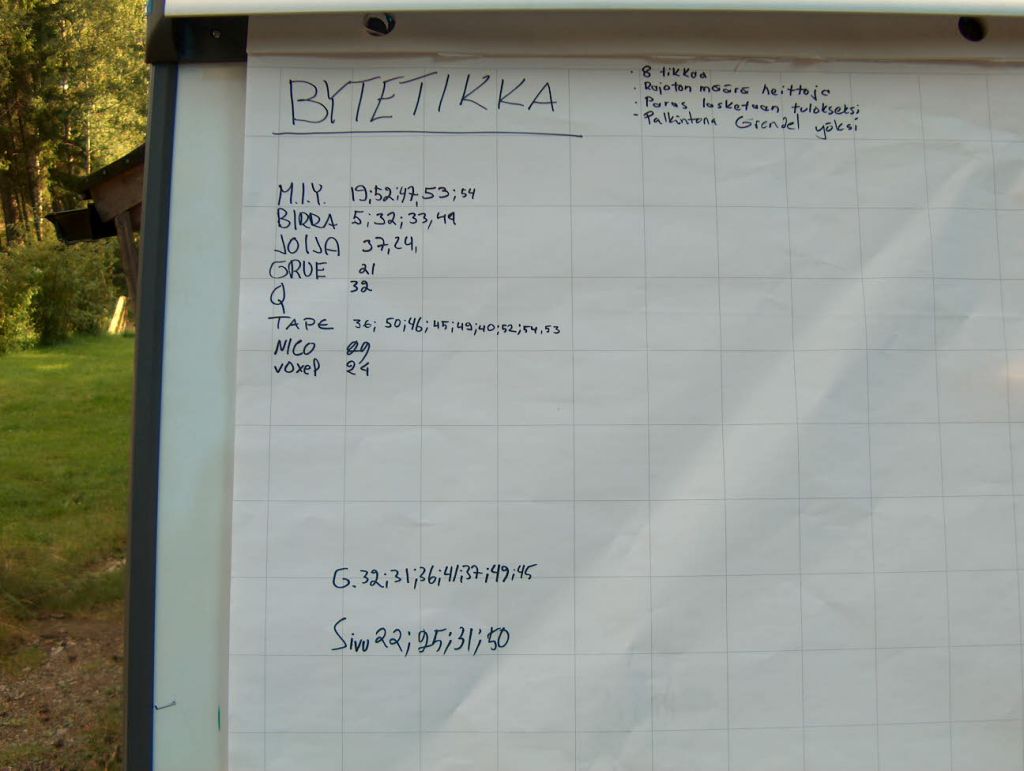 BYTETIKKA
· 8 tikkaa
· Rajaton määrä heittoja
· Paras lasketaan tulokseksi
· Palkintona Grendel yöksi
M.I.Y. 19;52;47,53;54
BIRRA 5;32;33,49
JOIJA 37,24,
GRUE 21
Q 32
TAPE 36; 50;46;45;49;40;52;54,53
NICO 29
voxel 24
G.32;31;36;41;37;49;45
Sivu 22;25;31;50